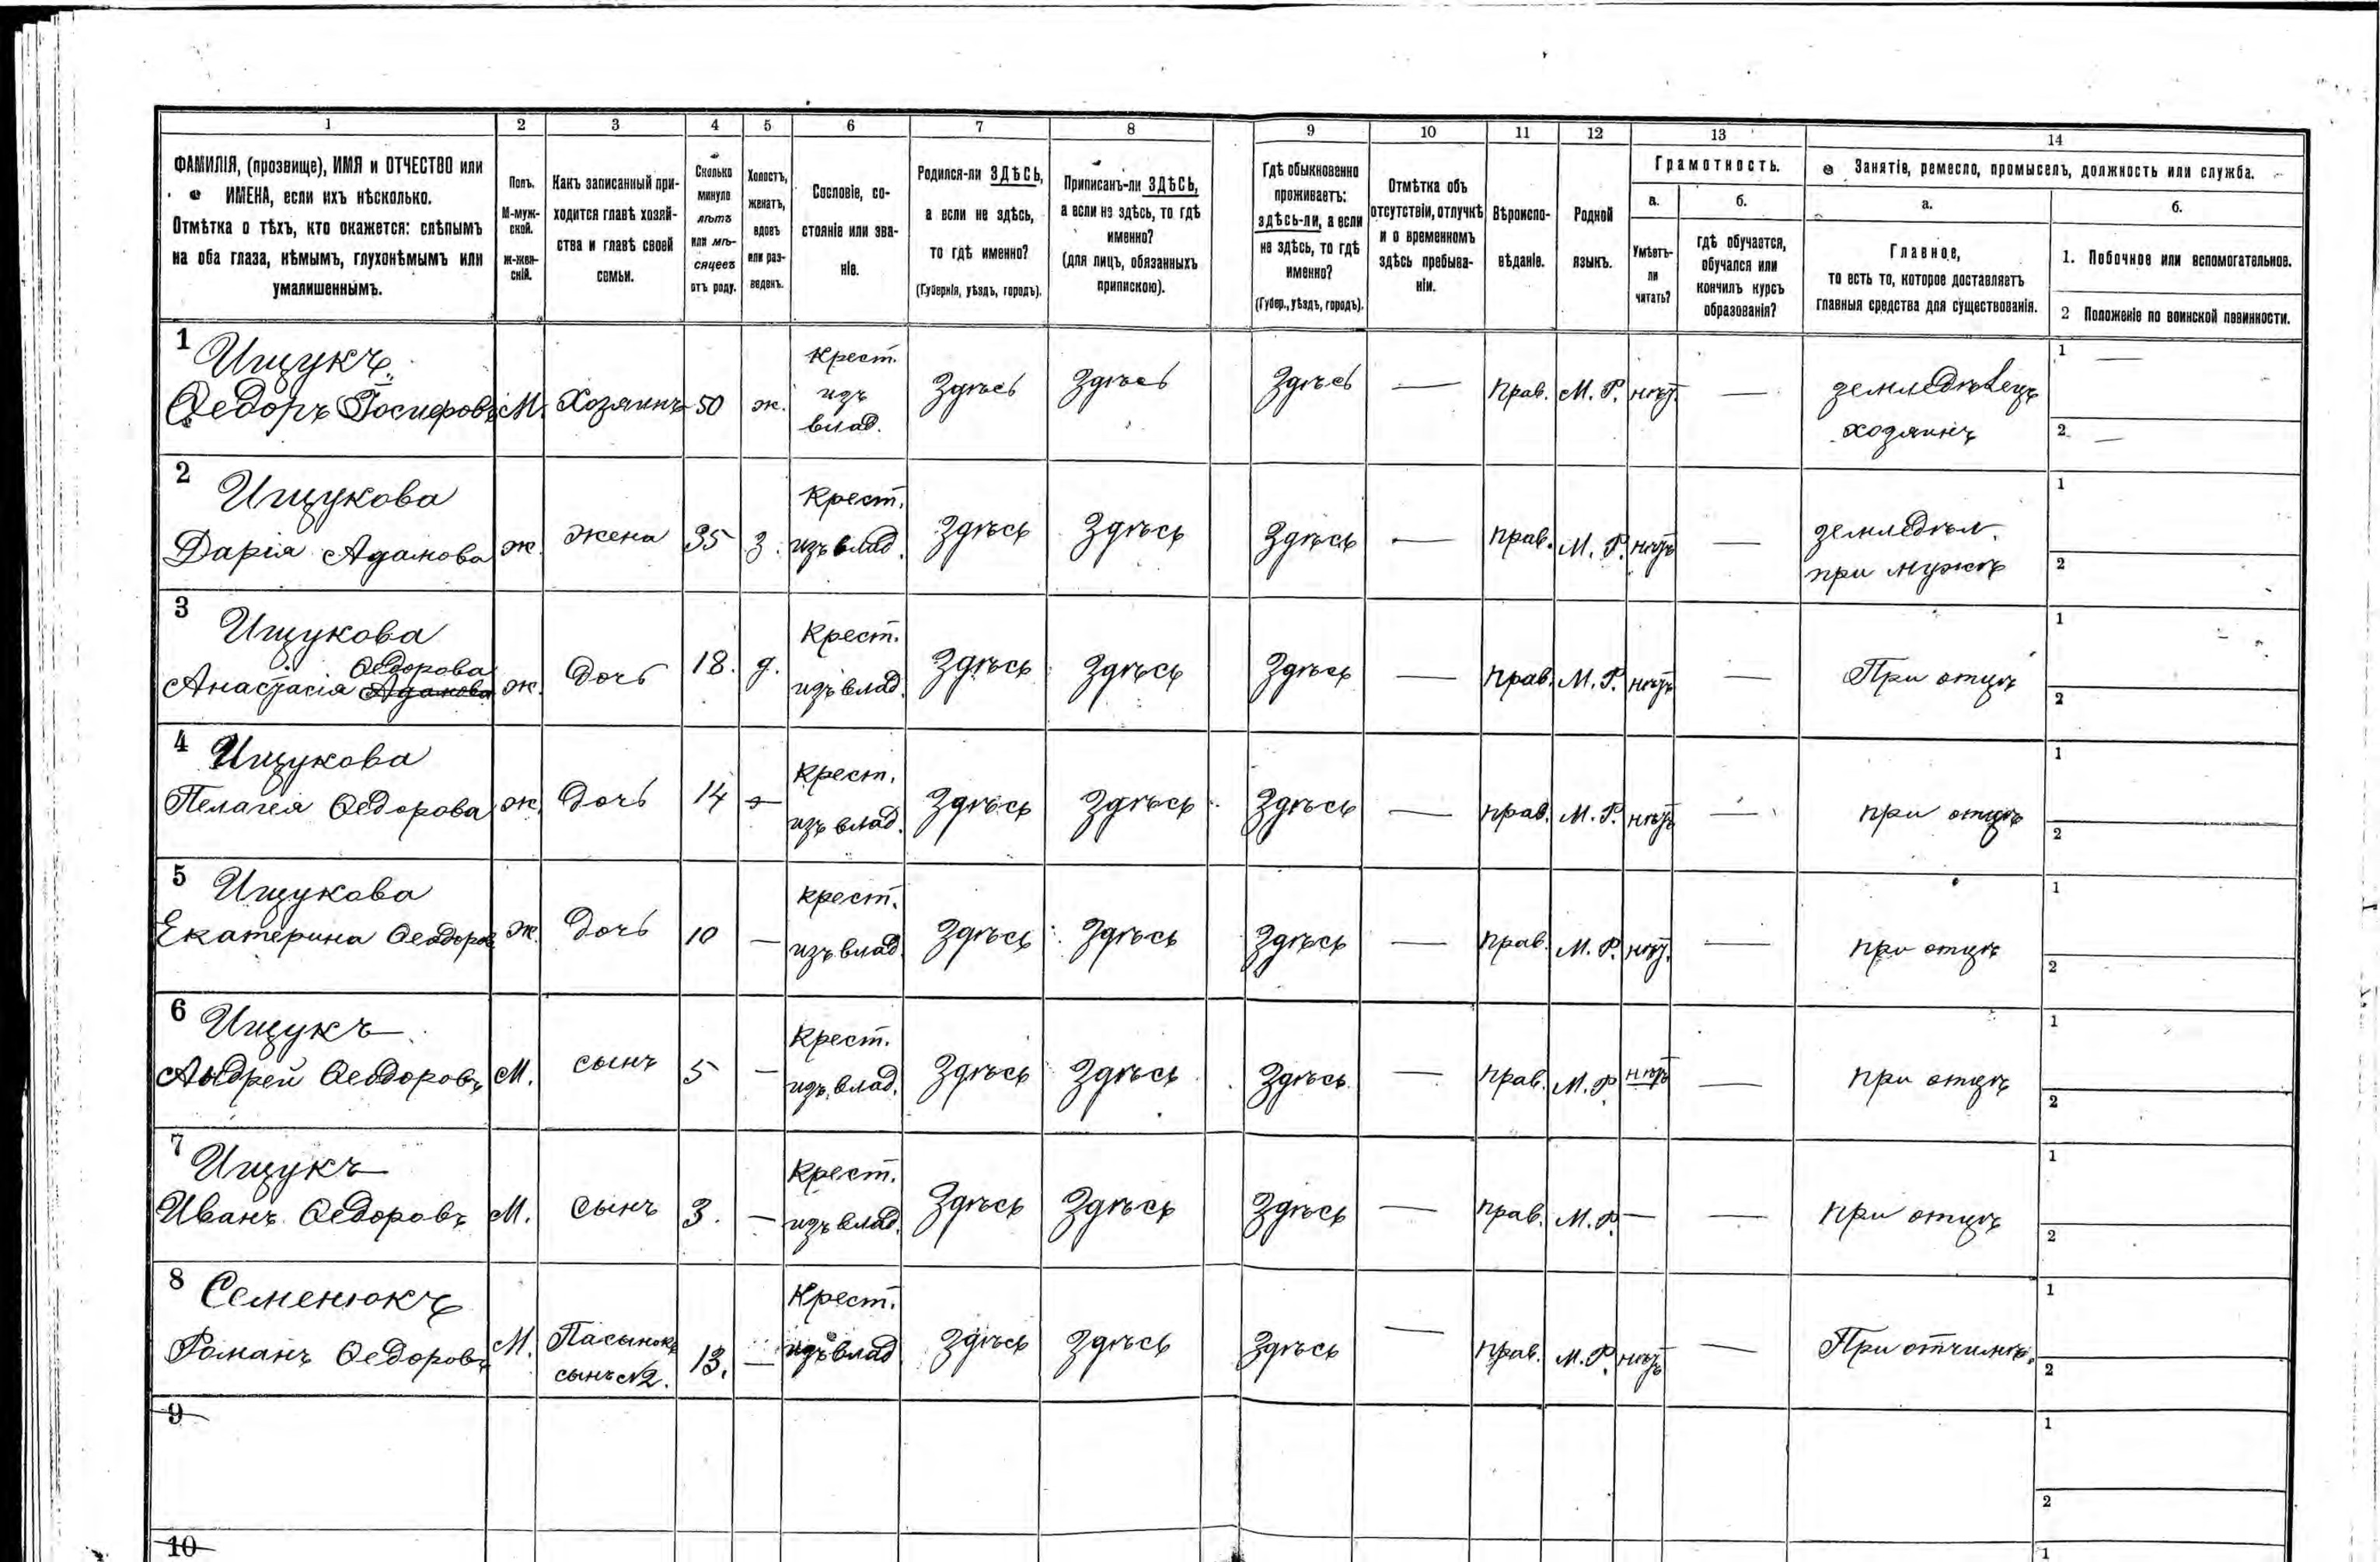 1 2 3 4 5 6 7 8 9 10 11 12 13 14
ФАМИЛІЯ, (прозвище), ИМЯ и ОТЧЕСТВО или
ИМЕНА, если ихъ нѣсколько.
Отмѣтка о тѣхъ, кто окажется: слѣпымъ
на оба глаза, нѣмымъ, глухонѣмымъ или
умалишеннымъ.
Полъ.
М-муж-
ской.
ж-жен-
скій.
Какъ записанный при-
ходится главѣ хозяй-
ства и главѣ своей
семьи.
Сколько
минуло
лѣтъ
или мѣ-
сяцевъ
отъ роду.
Холостъ,
женатъ,
вдовъ
или раз-
веденъ.
Сословіе, со-
стояніе или зва-
ніе.
Родился-ли ЗДѢСЬ,
а если не здѣсь,
то гдѣ именно?
(Губернія, уѣздъ, городъ).
Приписанъ-ли ЗДѢСЬ,
а если не здѣсь, то гдѣ
именно?
(для лицъ, обязанныхъ
припискою).
Гдѣ обыкновенно
проживаетъ:
здѣсь-ли, а если
не здѣсь, то гдѣ
именно?
(Губер., уѣздъ, городъ).
Отмѣтка объ
отсутствіи, отлучкѣ
и о временномъ
здѣсь пребыва-
ніи.
Вѣроиспо-
вѣданіе.
Родной
языкъ.
Грамотность.
а.
Умѣетъ-
ли
читать?
б.
гдѣ обучается,
обучался или
кончилъ курсъ
образованія?
Занятіе, ремесло, промыселъ, должность или служба.
а.
Главное,
то есть то, которое доставляетъ
главныя средства для существованія.
б.
1. Побочное или вспомогательное.
2 Положеніе по воинской повинности.
1 Ищукъ Крест. 1 —
Ѳедоръ Іосифовъ М. Хозяинъ 50 ж. изъ Здѣсь Здѣсь Здѣсь — прав. М. Р. нѣтъ — земледѣлецъ
влад. хозяинъ 2 —
2 Ищукова Крест. 1
Дарія Адамова ж. жена 35 з. изъ влад. Здѣсь Здѣсь Здѣсь — прав. М. Р. нѣтъ — земледѣл.
при мужѣ 2
3 Ищукова Крест. 1
Ѳедорова
Анастасія Адамова ж. дочь 18. д. изъ влад. Здѣсь Здѣсь Здѣсь — прав. М. Р. нѣтъ — При отцѣ 2
4 Ищукова Крест. 1
Пелагея Ѳедорова ж. дочь 14 — изъ влад. Здѣсь Здѣсь Здѣсь — прав. М. Р. нѣтъ — при отцѣ 2
5 Ищукова крест. 1
Екатерина Ѳеодоров ж. дочь 10 — изъ влад. Здѣсь Здѣсь Здѣсь — прав. М. Р. нѣтъ — при отцѣ 2
6 Ищукъ Крест. 1
Андрей Ѳеодоровъ М. сынъ 5 — изъ влад. Здѣсь Здѣсь Здѣсь — прав. М. Р. нѣтъ — при отцѣ 2
7 Ищукъ Крест. 1
Иванъ Ѳедоровъ М. сынъ 3. — изъ влад. Здѣсь Здѣсь Здѣсь — прав. М. Р. — — при отцѣ 2
8 Семенюкъ Крест. 1
Романъ Ѳедоровъ М. Пасынокъ 13. — изъ влад Здѣсь Здѣсь Здѣсь — прав. М. Р. нѣтъ — При отчимѣ. 2
сынъ №2.
9 1
2
10 1